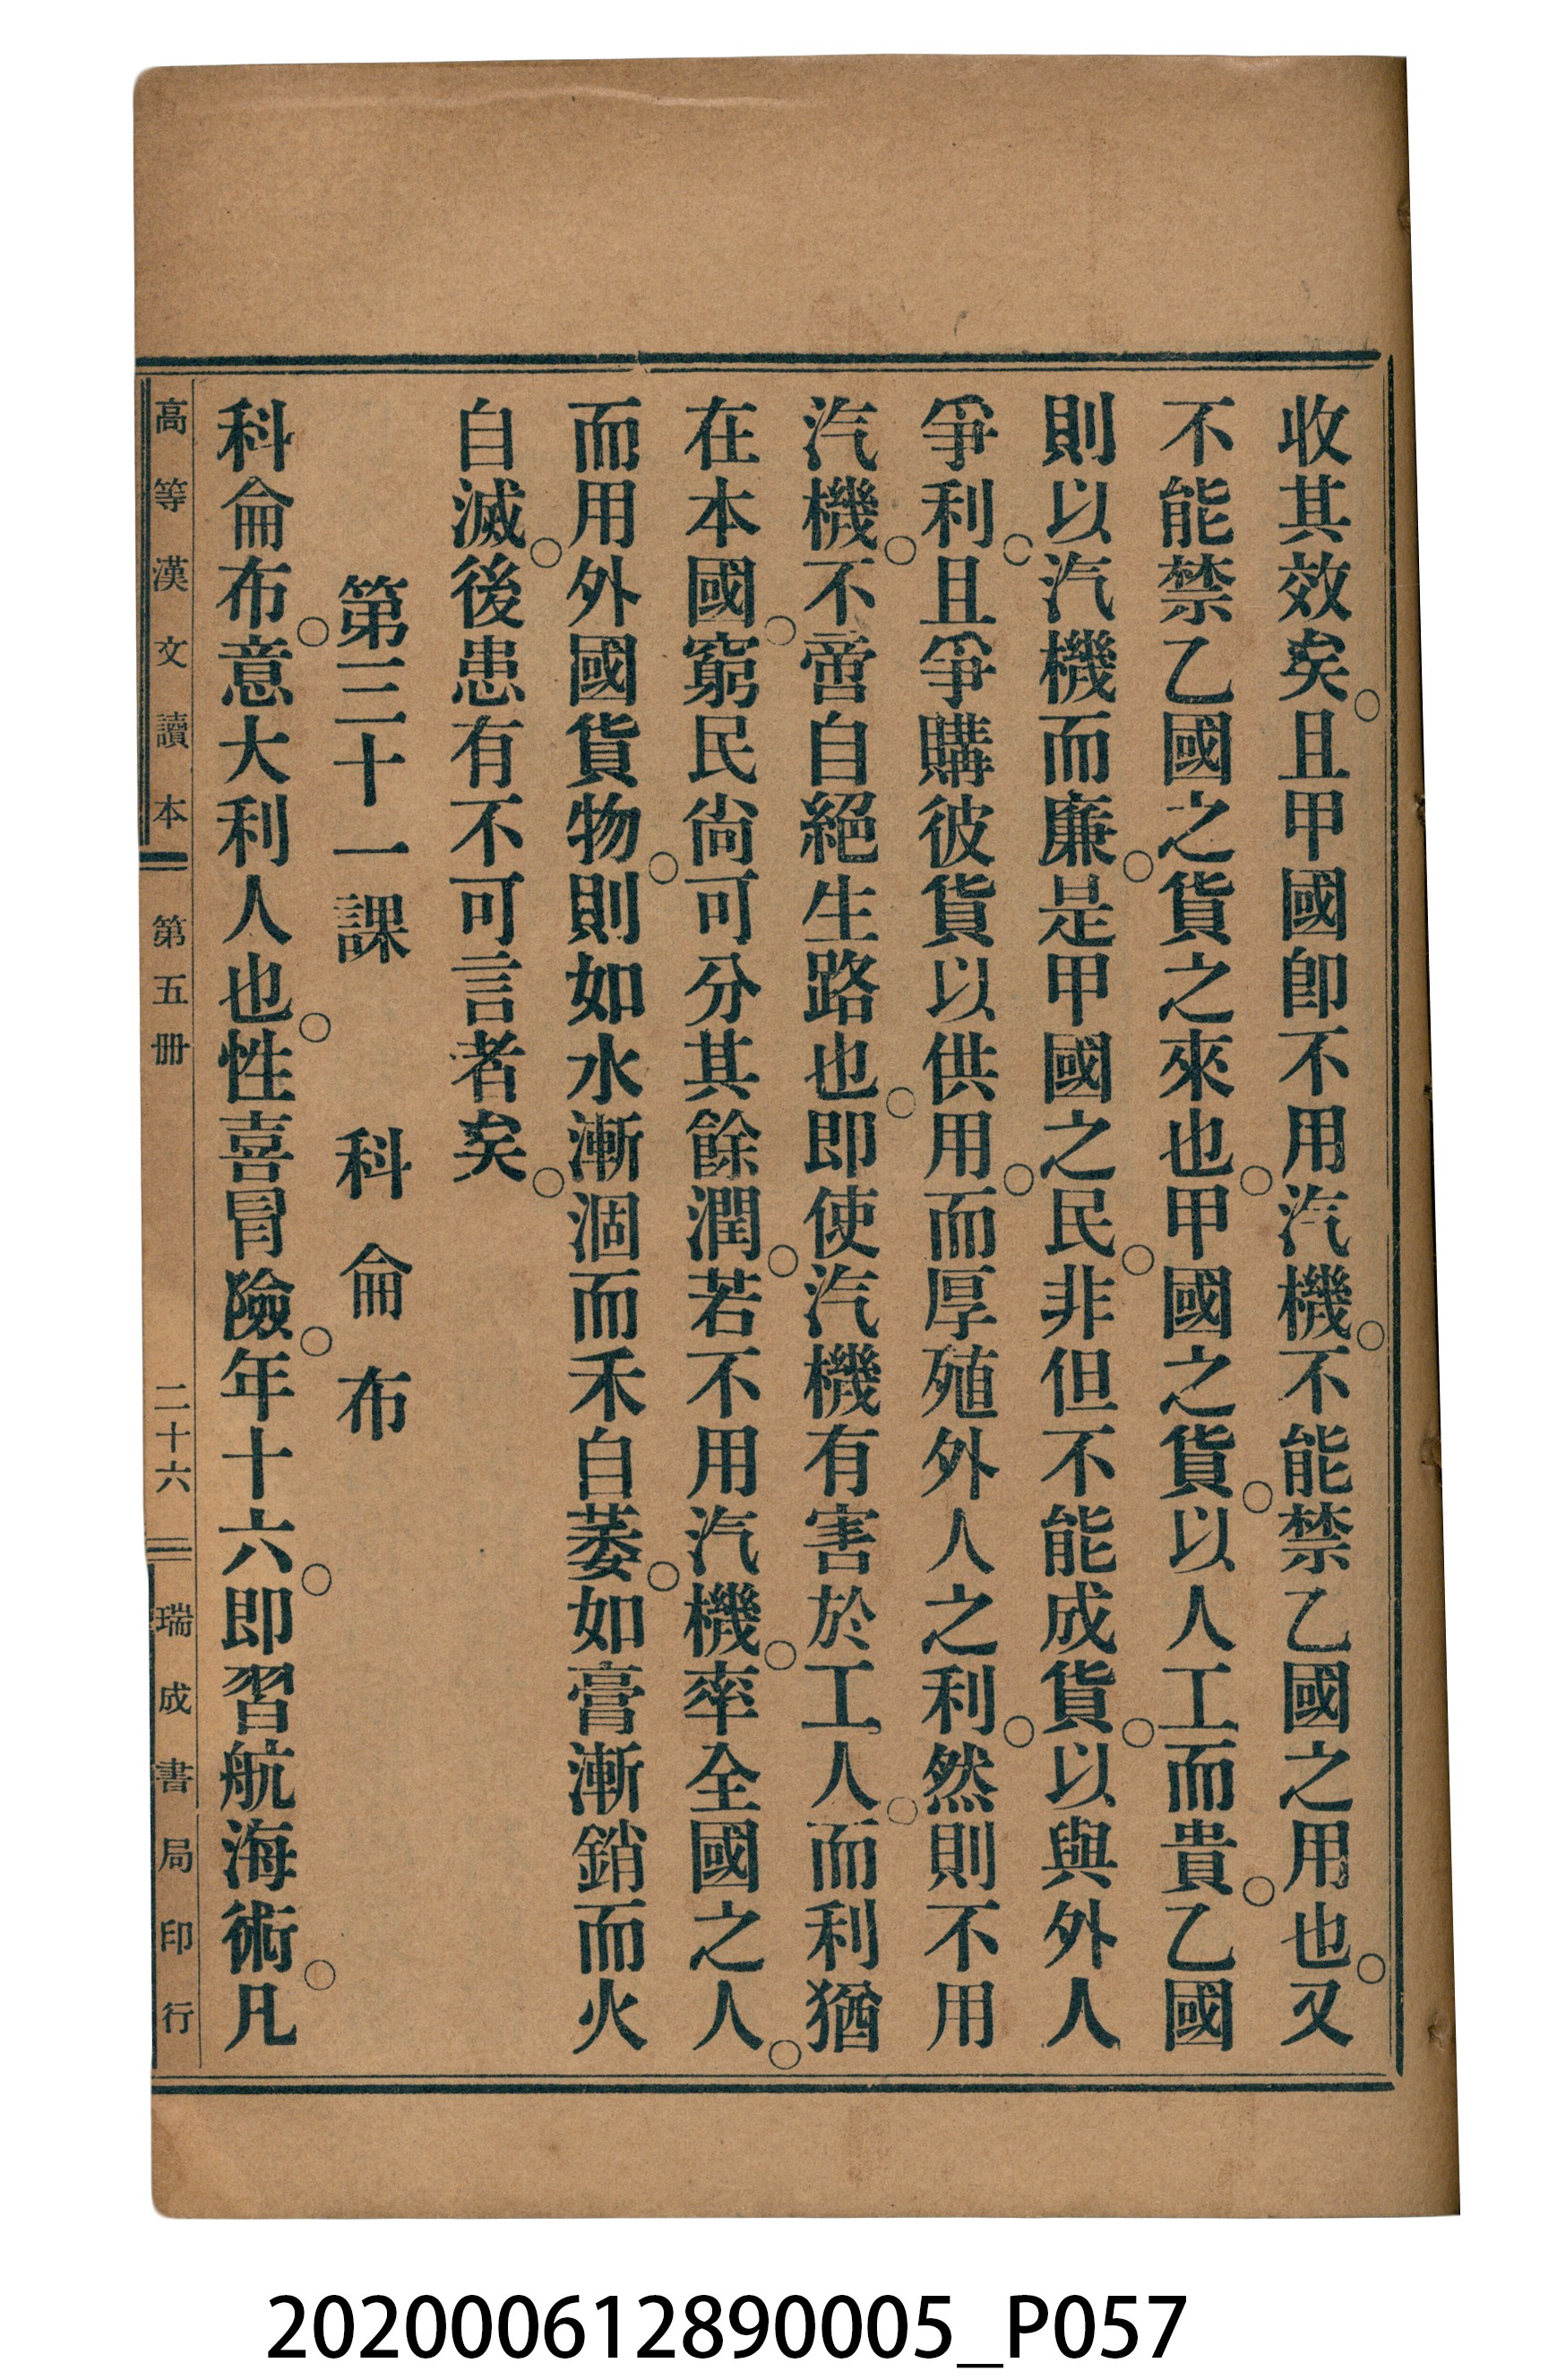 收其效矣。且甲國卽不用汽機。不能禁乙國之用也。又
不能禁乙國之貨之來也。甲國之貨。以人工而貴。乙國
則以汽機而廉。是甲國之民。非但不能成貨。以與外人
爭利。且爭購彼貨以供用。而厚殖外人之利。然則不用
汽機。不啻自絕生路也。即使汽機有害於工人。而利猶
在本國。窮民尙可分其餘潤。若不用汽機。率全國之人。
而用外國貨物。則如水漸涸而禾自萎。如膏漸銷而火
自滅。後患有不可言者矣。
第三十一課　科侖布
科侖布。意大利人也。性喜冒險。年十六。即習航海術。凡
高等漢文讀本　第五册　二十六　瑞成書局印行
202000612890005_P057